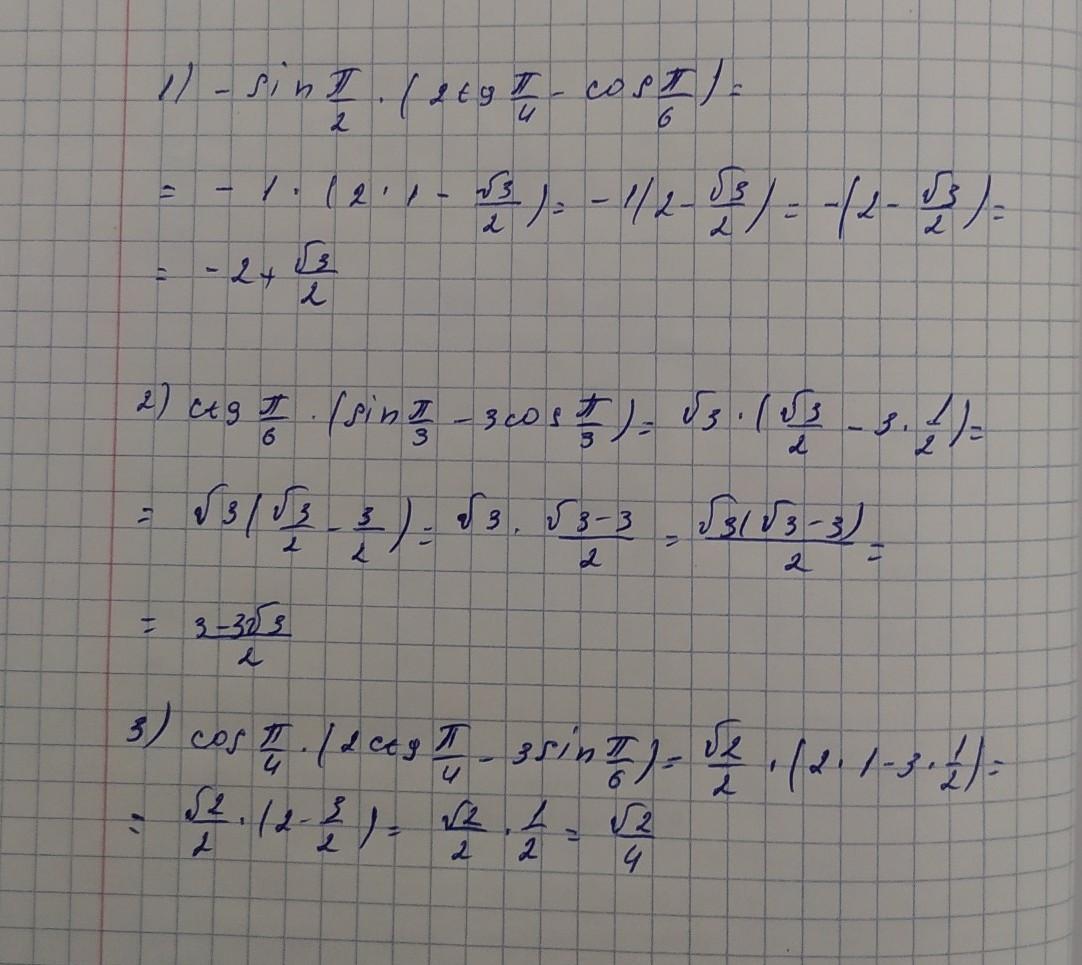 1) - sin π/2 · (2tg π/4 - cos π/6) =
= - 1 · (2 · 1 - √3/2) = - 1(2 - √3/2) = -(2 - √3/2) =
= - 2 + √3/2
2) ctg π/6 · (sin π/3 - 3cos π/3) = √3 · (√3/2 - 3 · 1/2) =
= √3(√3/2 - 3/2) = √3 · (√3-3)/2 = √3(√3-3)/2 =
= (3-3√3)/2
3) cos π/4 · (2ctg π/4 - 3sin π/6) = √2/2 · (2 · 1 - 3 · 1/2) =
= √2/2 · (2 - 3/2) = √2/2 · 1/2 = √2/4